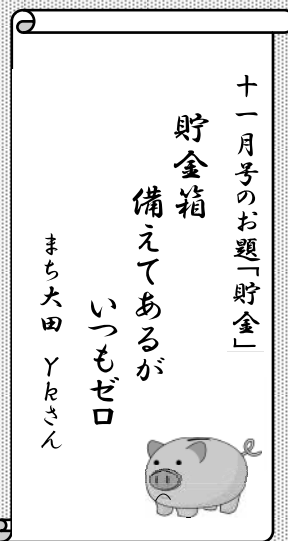 十一月号のお題「貯金」
貯金箱
備えてあるが
いつもゼロ
まち大田 Ykさん